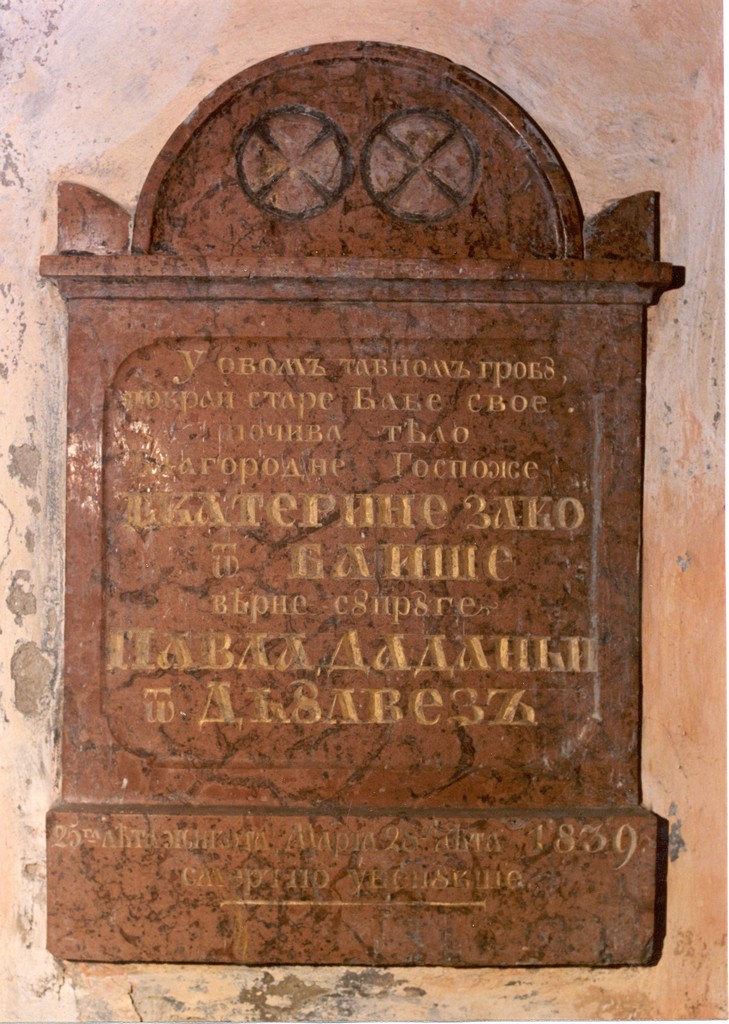 У овомъ тавномъ гробꙋ,
покраи старе Бабе свое
почива тѣло
Благородне Госпоже
Екатерине Зако
ѿ Баише
вѣрне сꙋпрꙋге
Павла Даданьи
ѿ Дьꙋлвезъ
25 лѣта живота Марта 28 лѣта 1839
смертію